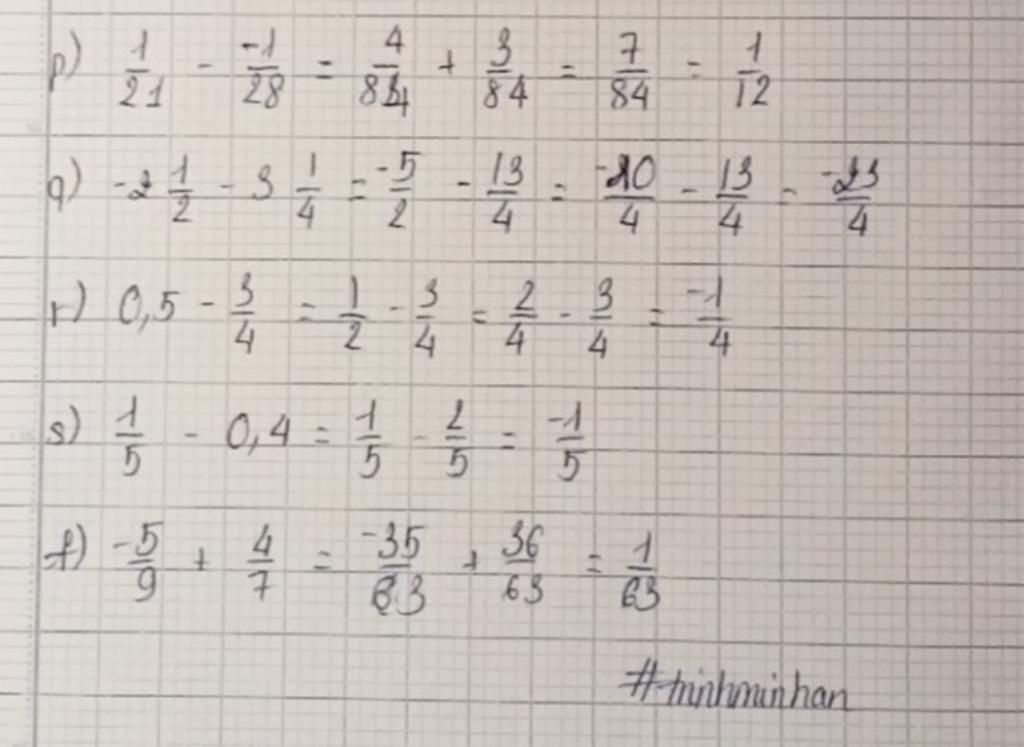 p) 1/21 - -1/28 = 4/84 + 3/84 = 7/84 = 1/12
q) -2 1/2 - 3 1/4 = -5/2 - 13/4 = -10/4 - 13/4 = -23/4
r) 0,5 - 3/4 = 1/2 - 3/4 = 2/4 - 3/4 = -1/4
s) 1/5 - 0,4 = 1/5 - 2/5 = -1/5
t) -5/9 + 4/7 = -35/63 + 36/63 = 1/63
#minhminhan